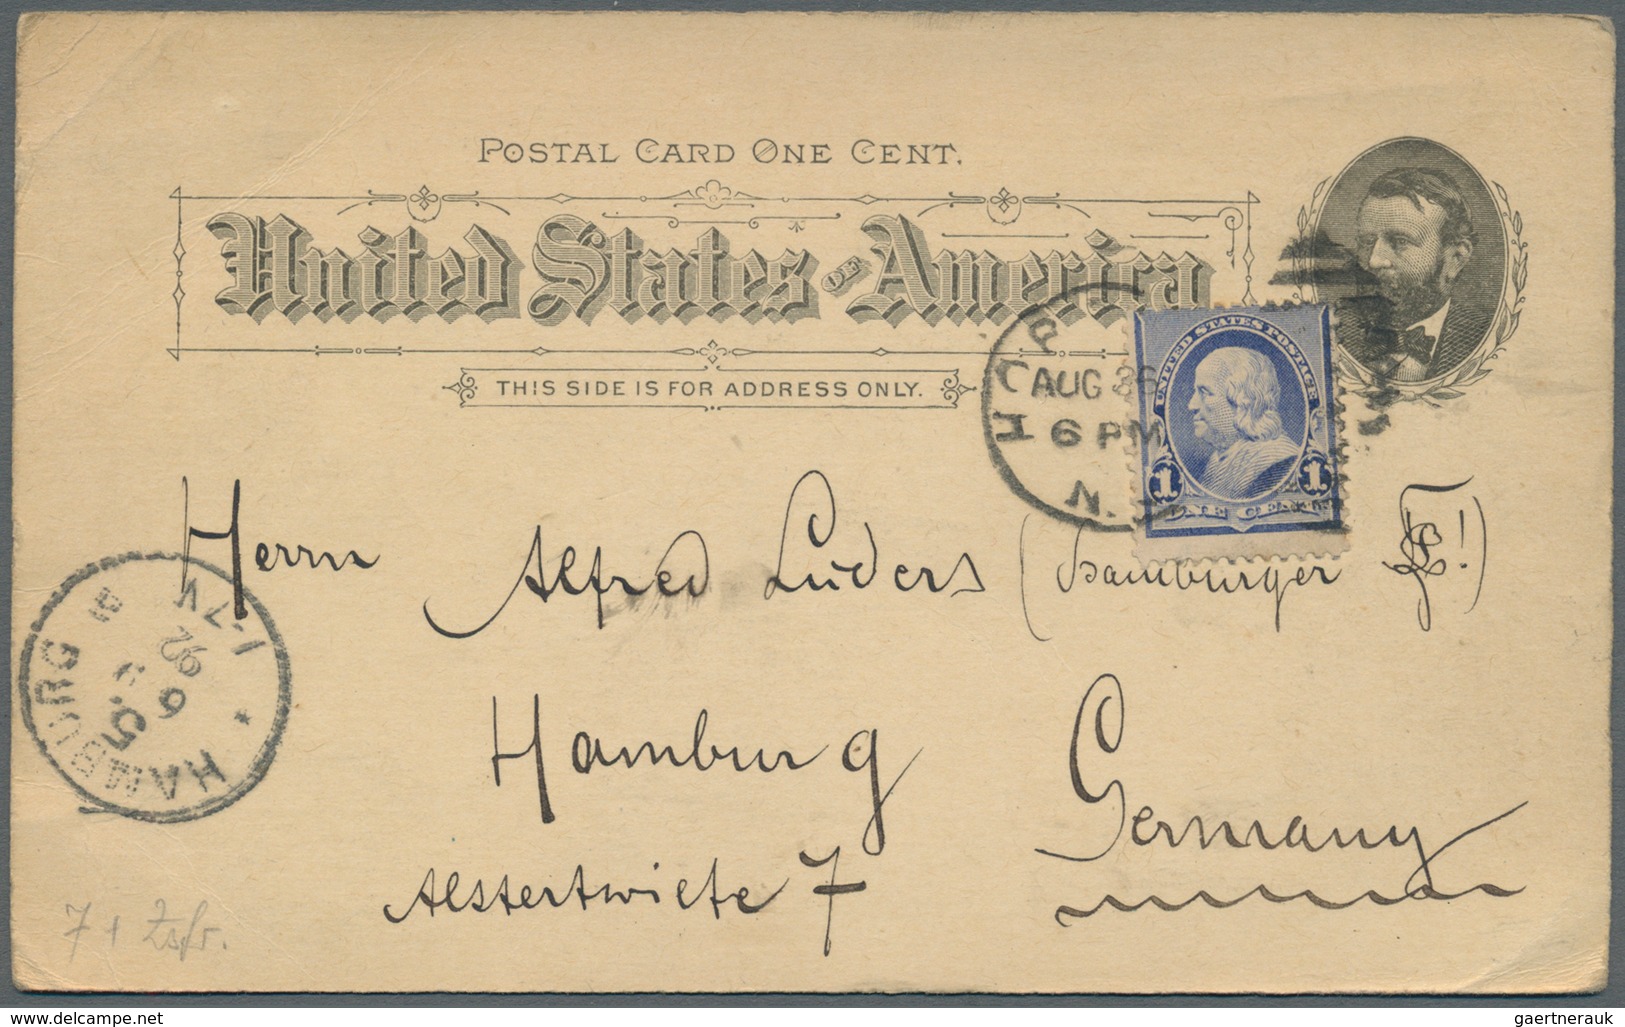 POSTAL CARD ONE CENT.
United States OF America
THIS SIDE IS FOR ADDRESS ONLY.
AUG 26
6 PM
N.J.
UNITED STATES POSTAGE
1 1
ONE CENT
Herrn Alfred Lüders (Hamburger !)
Hamburg
Germany
Alstertwiete 7
HAMBURG
5.
9
92
1-2N
7+ Zsfr.
www.delcampe.net
gaertnerauk